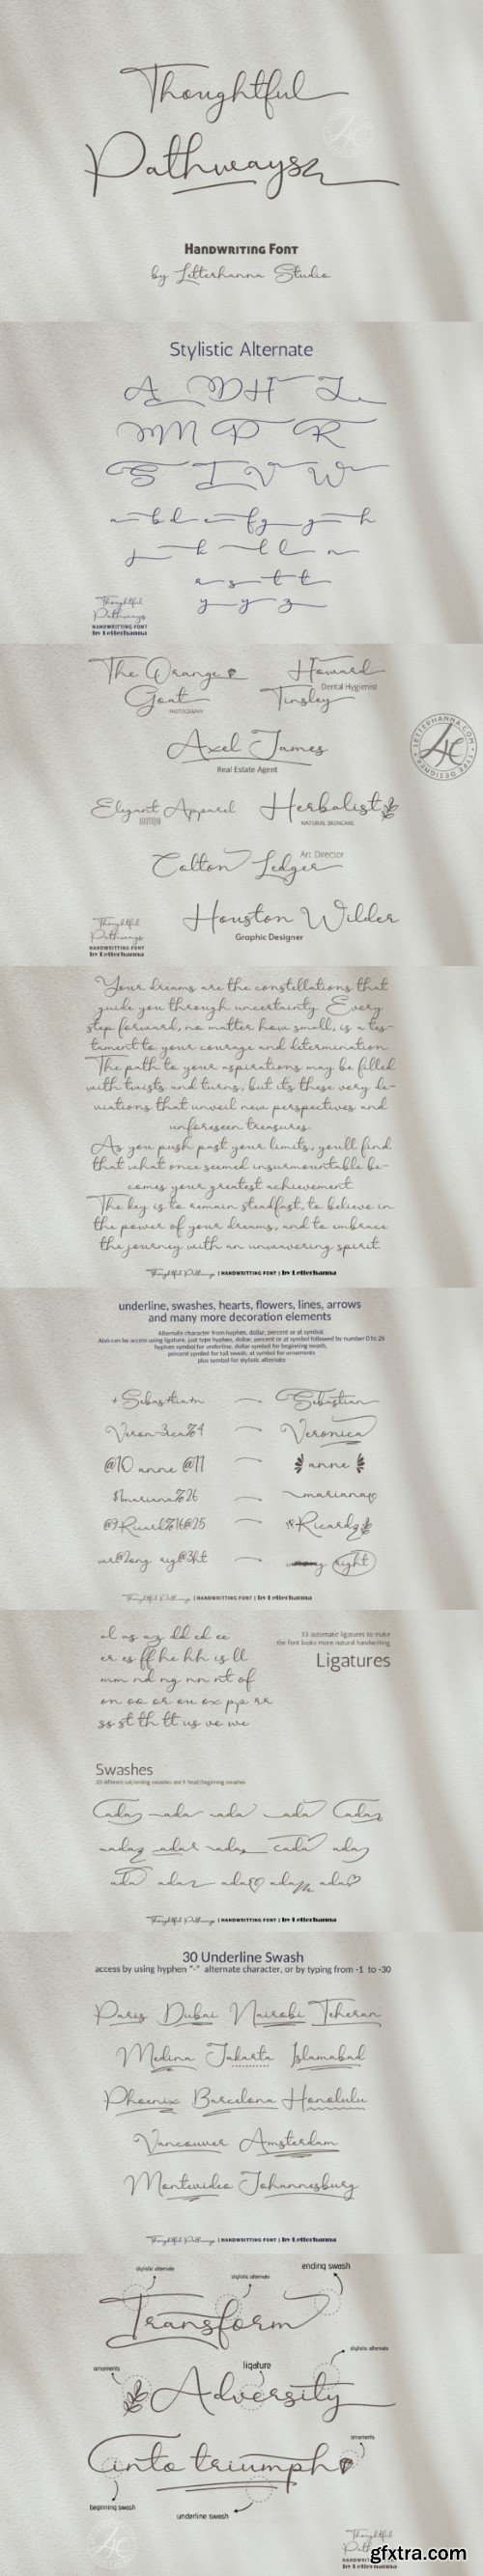 Thoughtful
Pathways
Handwriting Font
by Letterhanna Studio
Stylistic Alternate
A D H L
M M P R
S T V W
a b d e f g g h
j k l l n
a s t t
y y z
Thoughtful
Pathways
HANDWRITTING FONT
by Letterhanna
The Orange
Goat
PHOTOGRAPHY
Howard
Dental Hygienist
Tinsley
LETTERHANNA.COM • TYPE DESIGNER •
Axel James
Real Estate Agent
Elegant Apparel
BOUTIQUE
Herbalist
NATURAL SKINCARE
Art Director
Colton Ledger
Houston Wilder
Graphic Designer
Thoughtful
Pathways
HANDWRITTING FONT
by Letterhanna
Your dreams are the constellations that
guide you through uncertainty. Every
step forward, no matter how small, is a tes-
tament to your courage and determination.
The path to your aspirations may be filled
with twists and turns, but its these very de-
viations that unveil new perspectives and
unforeseen treasures.
As you push past your limits, youll find
that what once seemed insurmountable be-
comes your greatest achievement.
The key is to remain steadfast, to believe in
the power of your dreams, and to embrace
the journey with an unwavering spirit.
Thoughtful Pathways | HANDWRITTING FONT | by Letterhanna
underline, swashes, hearts, flowers, lines, arrows
and many more decoration elements
Alternate character from hyphen, dollar, percent or at symbol.
Also can be access using ligature, just type hyphen, dollar, percent or at symbol followed by number 0 to 26
hyphen symbol for underline, dollar symbol for beginning swash,
percent symbol for tail swash, at symbol for ornaments
plus symbol for stylistic alternate
+Sebas+tia+n Sebastian
Veron-3ica%4 Veronica
@10 anne @11 anne
$1mariana%26 mariana
@9Ricard%16@25 Ricard
wr@2ong rig@3ht right
Thoughtful Pathways | HANDWRITTING FONT | by Letterhanna
al as az dd ed ee
er es ff he hh is ll
mm nd ng nn nt of
on oo or ou ox pp rr
ss st th tt us ve we
33 automatic ligatures to make
the font looks more natural handwriting
Ligatures
Swashes
20 different tail/ending swashes and 9 head/beginning swashes
ada ada ada ada ada
ada ada ada ada ada
ada ada ada ada ada
Thoughtful Pathways | HANDWRITTING FONT | by Letterhanna
30 Underline Swash
access by using hyphen "-" alternate character, or by typing from -1 to -30
Paris Dubai Nairobi Teheran
Medina Jakarta Islamabad
Phoenix Barcelona Honolulu
Vancouver Amsterdam
Montevideo Johannesburg
Thoughtful Pathways | HANDWRITTING FONT | by Letterhanna
stylistic alternate
stylistic alternate
ending swash
Transform
stylistic alternate
ornaments
ligature
Adversity
ornaments
into triumph
beginning swash
underline swash
Thoughtful
Pathways
HANDWRITTING FONT
by Letterhanna
gfxtra.com